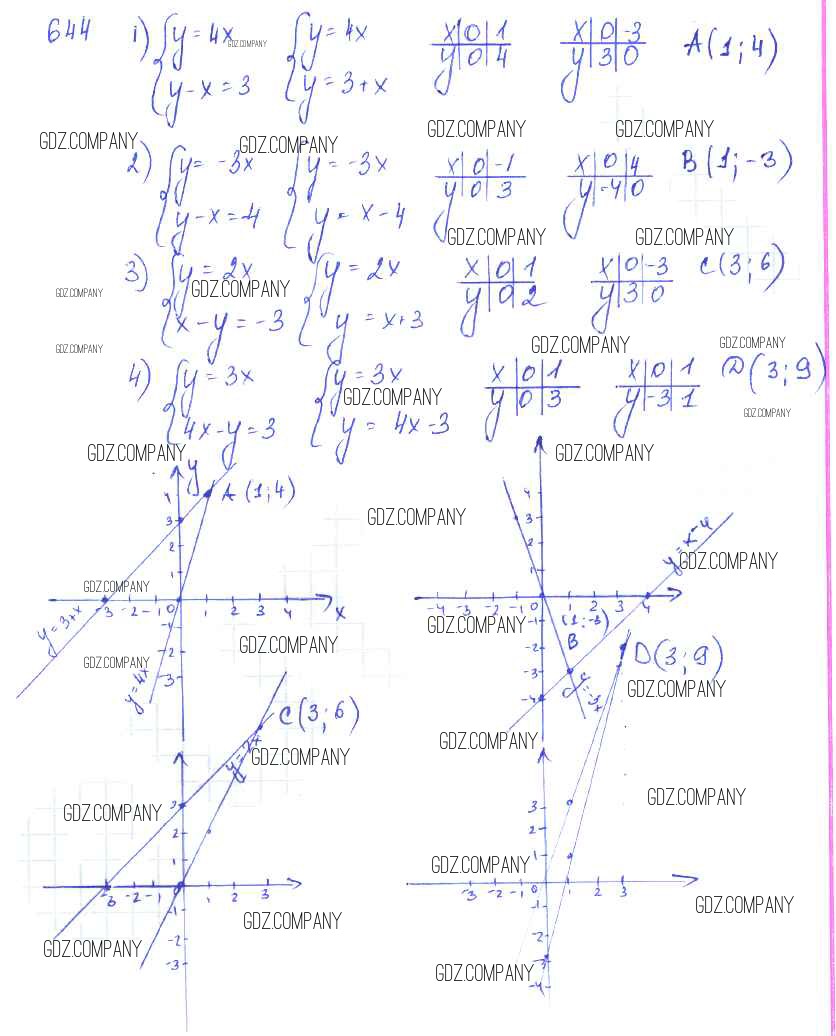 644 1) { y = 4x { y = 4x x|0|1 x|0|-3 A(1;4)
GDZ.COMPANY
y - x = 3 y = 3 + x y|0|4 y|3|0
GDZ.COMPANY GDZ.COMPANY GDZ.COMPANY GDZ.COMPANY
2) { y = -3x { y = -3x x|0|-1 x|0|4 B(1;-3)
y - x = -4 y = x - 4 y|0|3 y|-4|0
GDZ.COMPANY GDZ.COMPANY
3) { y = 2x { y = 2x x|0|1 x|0|-3 C(3;6)
GDZ.COMPANY GDZ.COMPANY
x - y = -3 y = x + 3 y|0|2 y|3|0
GDZ.COMPANY GDZ.COMPANY GDZ.COMPANY
4) { y = 3x { y = 3x x|0|1 x|0|1 D(3;9)
GDZ.COMPANY GDZ.COMPANY
4x - y = 3 y = 4x - 3 y|0|3 y|-3|1
GDZ.COMPANY GDZ.COMPANY
y A(1;4)
4
3
2
1
GDZ.COMPANY
-3 -2 -1 0 1 2 3 4 x
y = 3+x
-1
-2
-3
y = 4x
GDZ.COMPANY GDZ.COMPANY GDZ.COMPANY
4
3
2
1
y = x - 4
GDZ.COMPANY
-4 -3 -2 -1 0 1 2 3 4
GDZ.COMPANY
(1;-3)
B
-1
-2
-3
-4
y = -3x
GDZ.COMPANY
C(3;6)
y = 2x
GDZ.COMPANY
GDZ.COMPANY
3
2
1
-3 -2 -1 0 1 2 3
-1
-2
-3
GDZ.COMPANY GDZ.COMPANY
D(3;9)
GDZ.COMPANY
GDZ.COMPANY
3
2
1
GDZ.COMPANY
-3 -2 -1 0 1 2 3
-1
-2
-3
-4
GDZ.COMPANY GDZ.COMPANY